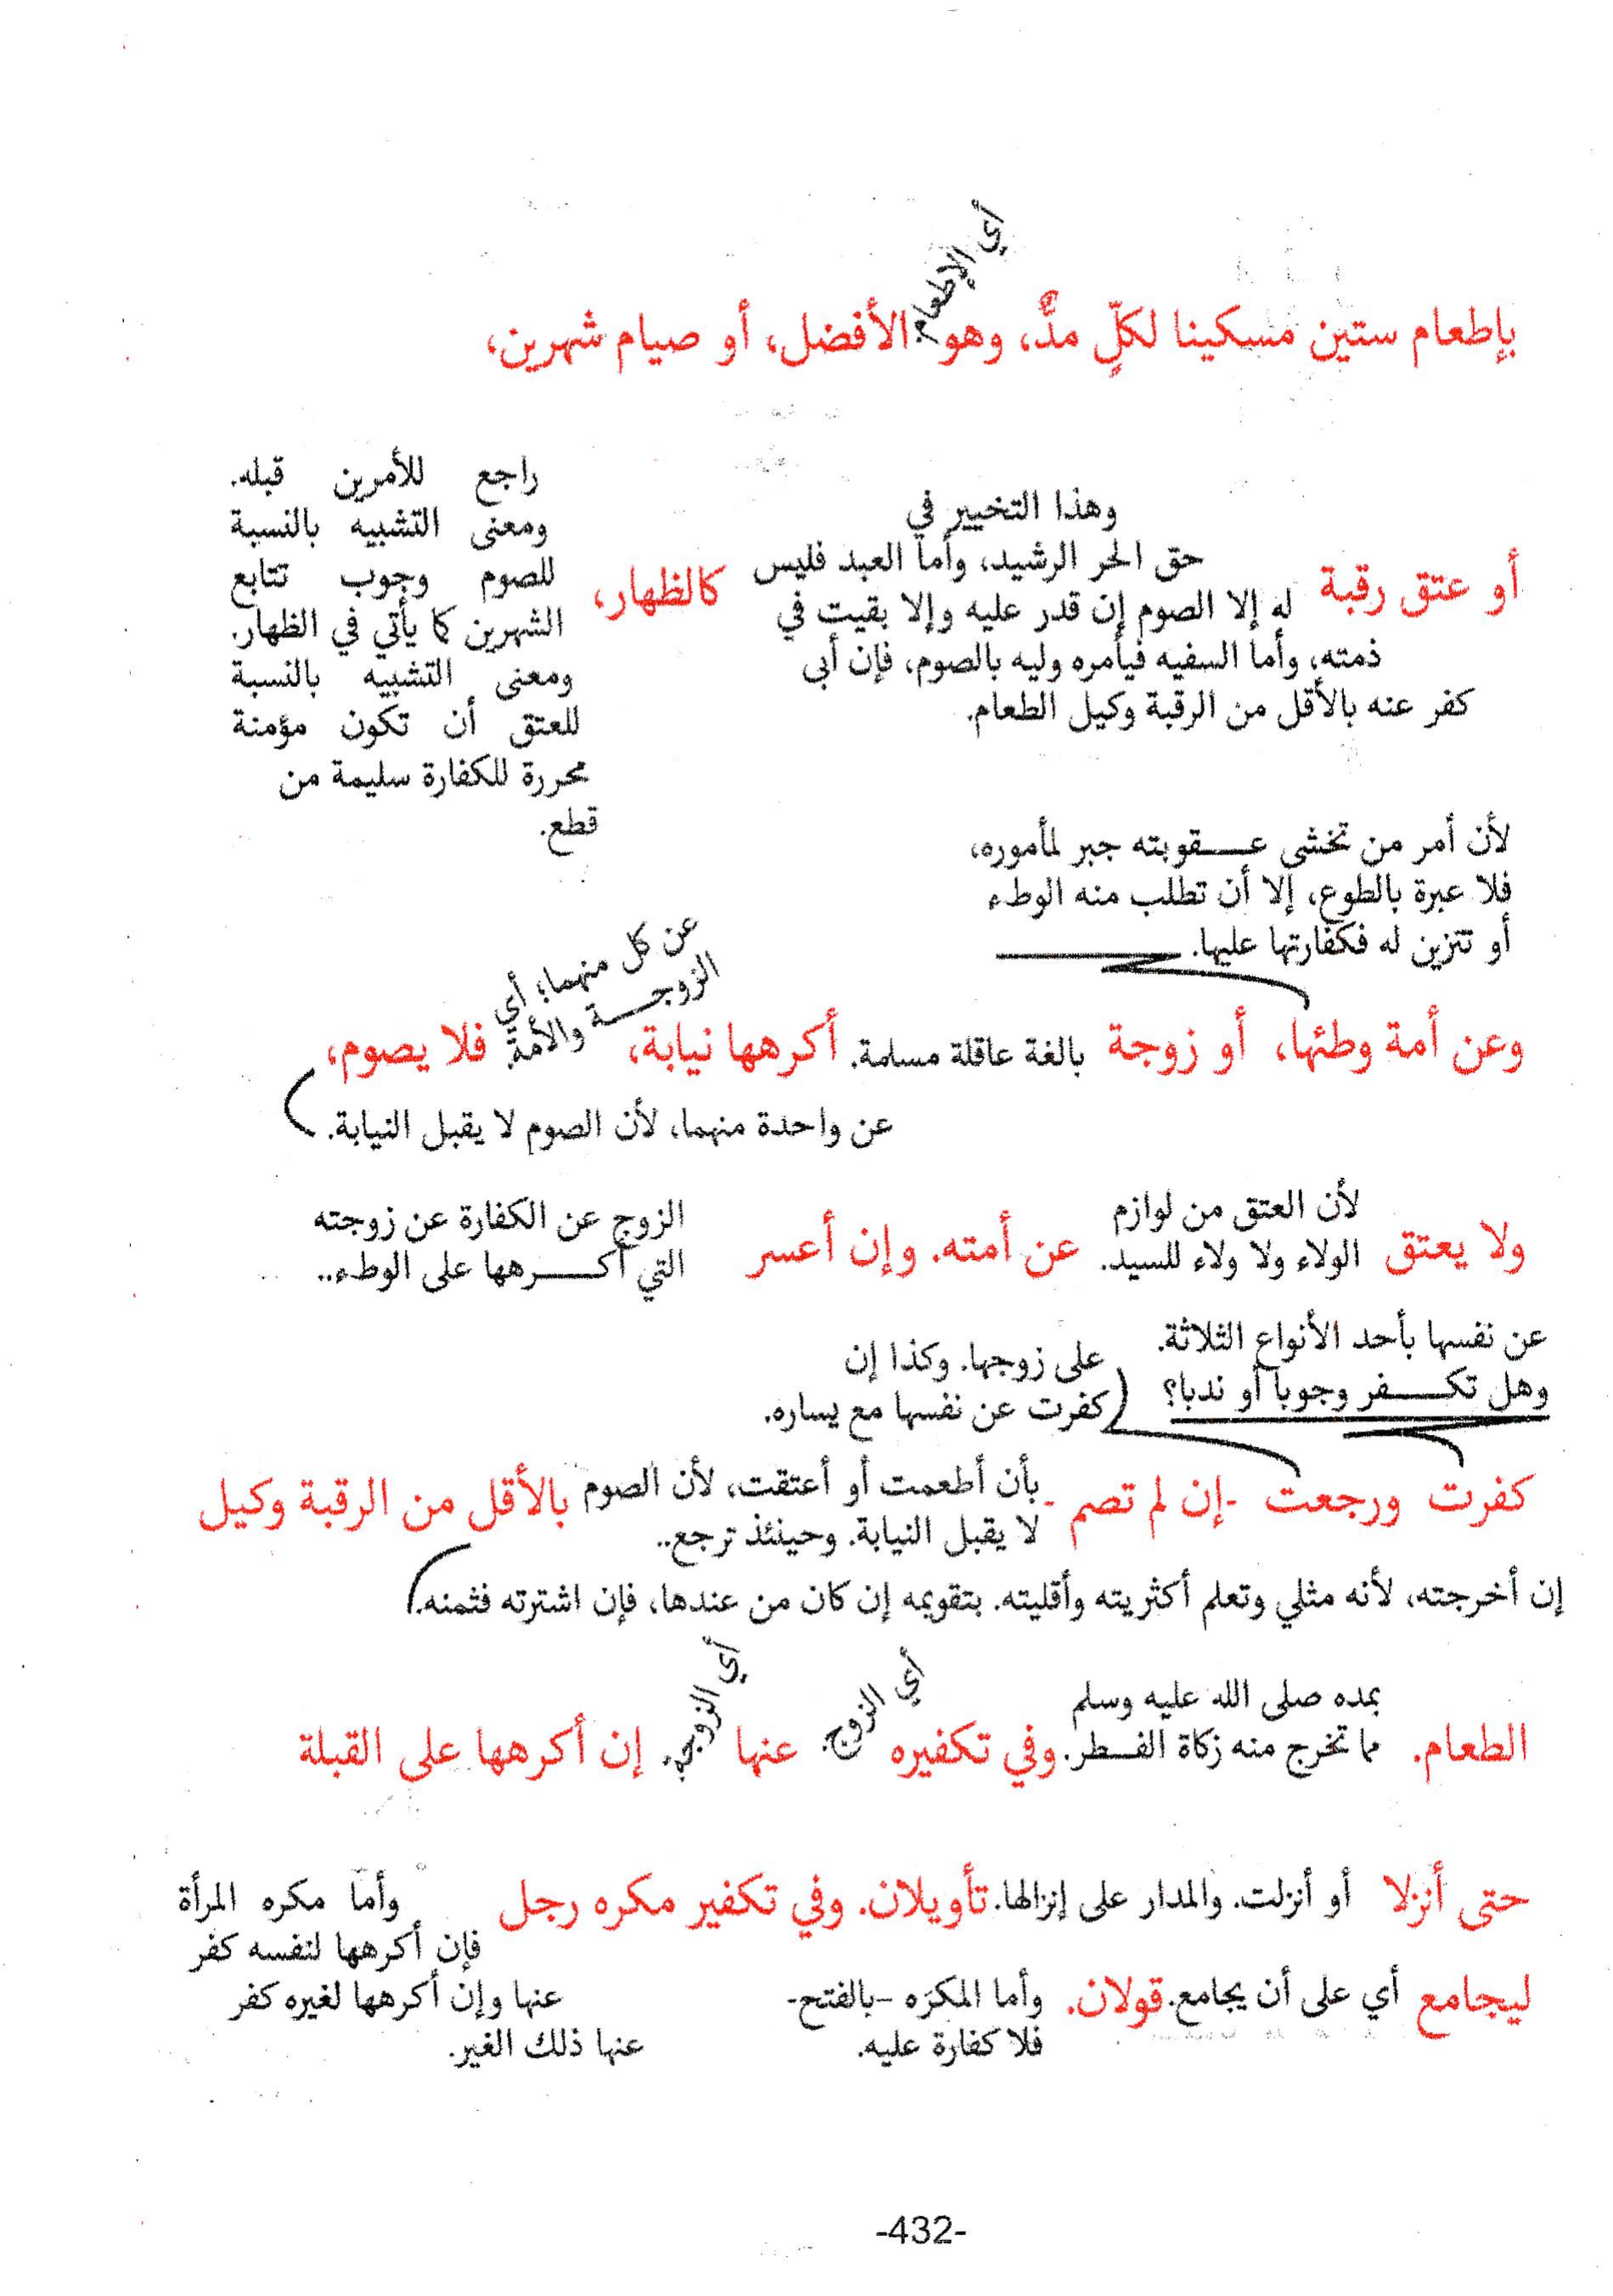 أي الإطعام.
بإطعام ستين مسكينا لكلّ مدٌّ، وهو الأفضل، أو صيام شهرين،
أو عتق رقبة
وهذا التخيير في
حق الحر الرشيد، وأما العبد فليس
له إلا الصوم إن قدر عليه وإلا بقيت في
ذمته، وأما السفيه فيأمره وليه بالصوم، فإن أبى
كفر عنه بالأقل من الرقبة وكيل الطعام.
كالظهار،
راجع للأمرين قبله.
ومعنى التشبيه بالنسبة
للصوم وجوب تتابع
الشهرين كما يأتي في الظهار.
ومعنى التشبيه بالنسبة
للعتق أن تكون مؤمنة
محررة للكفارة سليمة من
قطع.
لأن أمر من تخشى عـقوبته جبر لمأموره،
فلا عبرة بالطوع، إلا أن تطلب منه الوطء
أو تتزين له فكفارتها عليها.
وعن أمة وطئها، أو زوجة بالغة عاقلة مسلمة. أكرهها نيابة،
عن كل منهما؛ أي
الزوجـة والأمة.
فلا يصوم،
عن واحدة منهما، لأن الصوم لا يقبل النيابة.
ولا يعتق
لأن العتق من لوازم
الولاء ولا ولاء للسيد.
عن أمته. وإن أعسر
الزوج عن الكفارة عن زوجته
التي أكـرهها على الوطء..
عن نفسها بأحد الأنواع الثلاثة.
وهل تكـفر وجوبا أو ندبا؟
على زوجها. وكذا إن
كفرت عن نفسها مع يساره.
كفرت ورجعت -إن لم تصم-
بأن أطعمت أو أعتقت، لأن الصوم
لا يقبل النيابة. وحينئذ ترجع..
بالأقل من الرقبة وكيل
إن أخرجته، لأنه مثلي وتعلم أكثريته وأقليته. بتقويمه إن كان من عندها، فإن اشترته فثمنه.
الطعام.
بمده صلى الله عليه وسلم
مما تخرج منه زكاة الفـطر.
وفي تكفيره أي الزوج. عنها أي الزوجة. إن أكرهها على القبلة
حتى أنزلا أو أنزلت. والمدار على إنزالها. تأويلان. وفي تكفير مكره رجل
ليجامع أي على أن يجامع. قولان.
وأما المكرَه -بالفتح-
فلا كفارة عليه.
وأما مكره المرأة
فإن أكرهها لنفسه كفر
عنها وإن أكرهها لغيره كفر
عنها ذلك الغير.
-432-